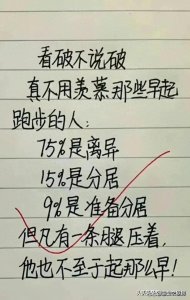 看破不说破
真不用羡慕那些早起
跑步的人：
75%是离异
15%是分居
9%是准备分居
但凡有一条腿压着，
他也不至于起那么早！